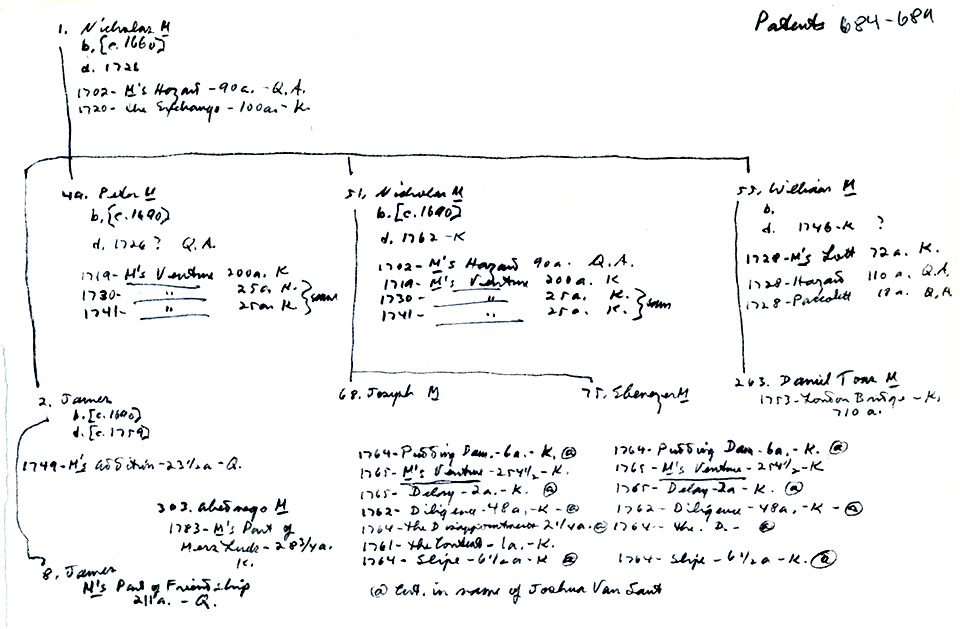 Patents 684-689
1. Nicholas M
b. [c. 1660]
d. 1726
1702- M's Hazard - 90a. - Q.A.
1720- the Exchange - 100a. - K.
49. Peter M
b. [c. 1690]
d. 1726? Q.A.
1719- M's Venture 200a. K
1730- " 25a. K.
1741- " 25a. K
51. Nicholas M
b. [c. 1690]
d. 1762 - K
1702- M's Hazard 90a. Q.A.
1719- M's Venture 200a. K
1730- " 25a. K.
1741- " 25a. K.
55. William M
b.
d. 1746-K ?
1728- M's Lott 72a. K.
1728- Hazard 110 a. Q.A.
1728- 18a. Q.A
2. James
b. [c. 1690]
d. [c. 1759]
1749- M's Addition - 23 1/2a - Q.
68. Joseph M
75. Ebenezer M
263. Daniel Toas M
1753- London Bridge - K.
710 a.
303. Abednego M
1783- M's Part of
- 283/4a.
K.
8. James
M's Part of Friendship
211a. - Q.
1764- Pudding Dam. - 6a. - K. @
1765- M's Venture - 254 1/2 - K.
1765- Delay - 2a. - K. @
1762- Diligence - 48a. - K - @
1764- the Disappointment 21 1/4a. @
1761- the - 1a. - K.
1764- Slipe - 6 1/2a - K @
1764- Pudding Dam - 6a. - K. @
1765- M's Venture - 254 1/2 - K
1765- Delay - 2a - K. @
1762- Diligence - 48a. - K - @
1764- the. D. - @
1764- Slipe - 6 1/2a - K. @
@ Cert. in name of Joshua Van Sant